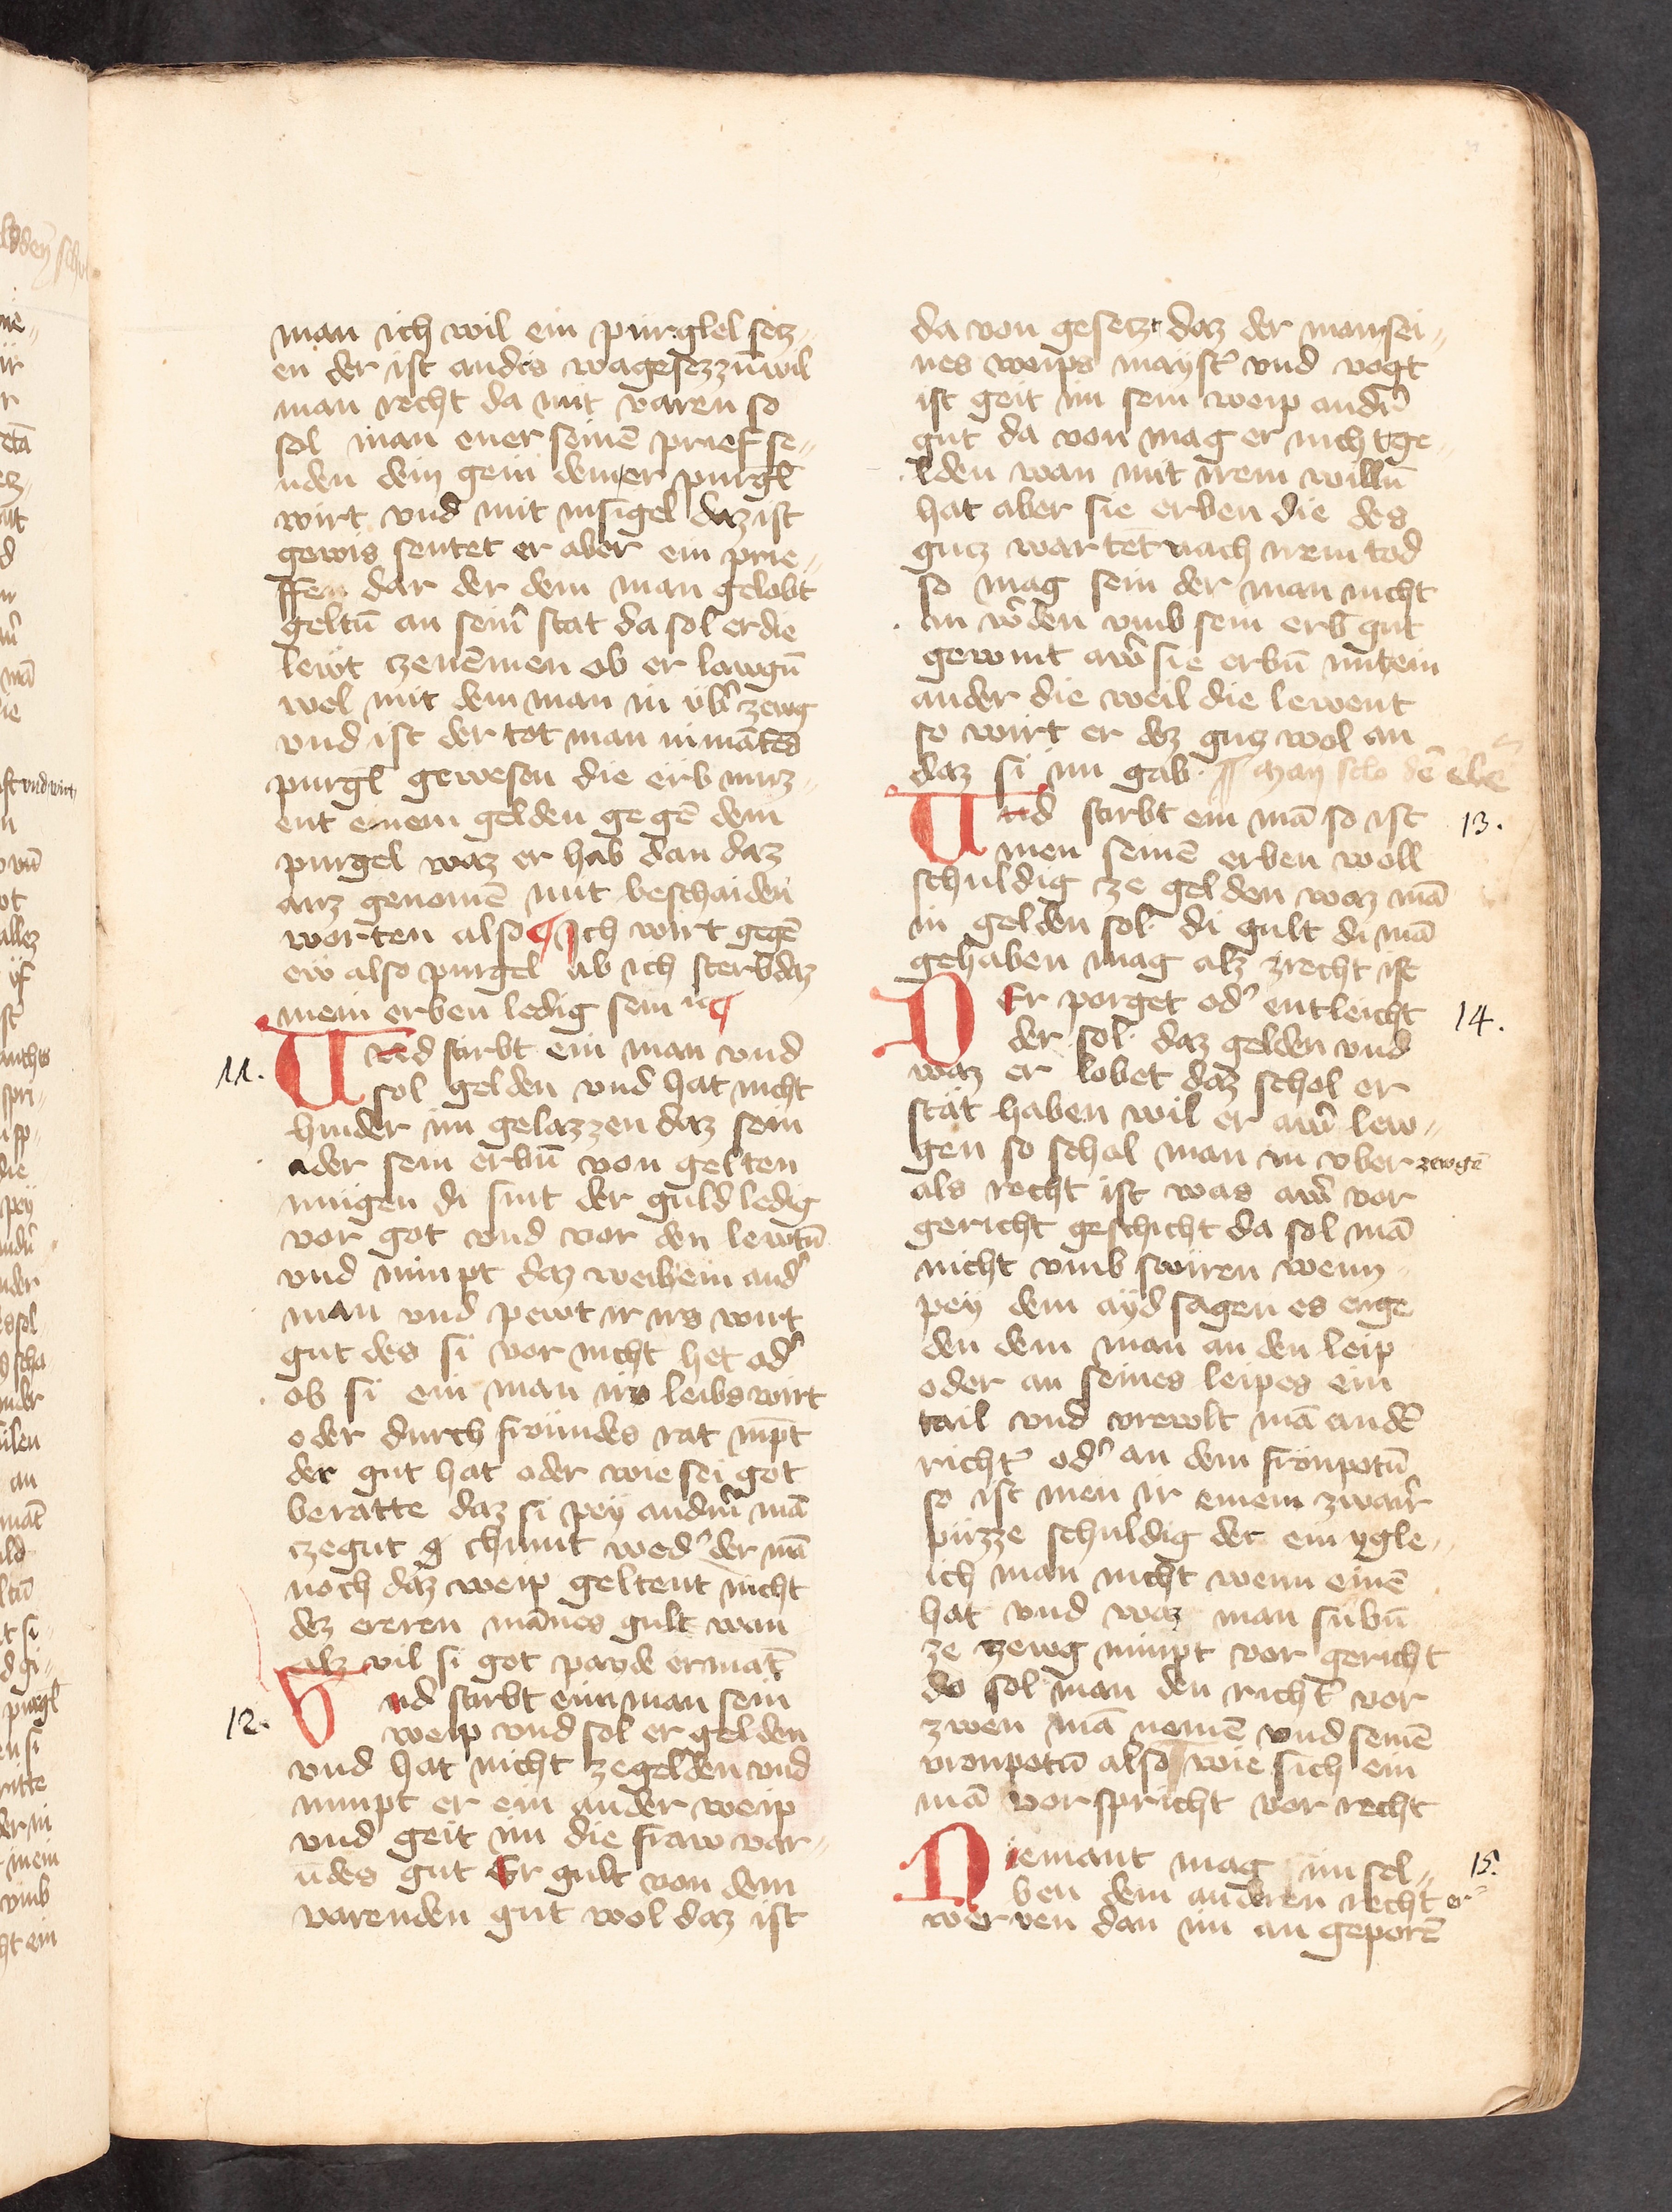 man ich wil ein purglel setz„
en der ist andrs wagesezzn̄ wil
man recht da mit varen so
sol man ener seinē prief se„
nden dem gein dem er purgl
wirt vnd mit insigel daz ist
gewis sentet er aber ein prie„
ffen dar der dem man gelobt
geltn̄ an seinr̄ stat da sol er die
lewt czenēmen ob er lawgn̄
wel mit dem man in vbr̄ zewg
vnd ist der tot man nimātes
purgl gewesen die erb muz„
ent einem gelden gegē dem
purgel waz er hab dan daz
auz genomē mit beschaiden̄
worten also ¶ Ich wirt gegē
ew also purgel ab ich sterb daz
mein erben ledig sein ¶
11.
Und stirbt ein man vnd
sol gelden vnd hat nicht
hinder im gelazzen daz sein
ader sein erbn̄ von gelten
mugen di sint der guld ledig
vor got vnd vor den lewtn̄
vnd nimpt daz weib ein and̄
man vnd pewt ir irs wirt
gut des si vor nicht het od̄
ob si ein man irs leibs wirt
oder durch frôundes rat nīpt
der gut hat oder wie sei got
beratte daz si pey andrm̄ mā
czegut g chumt wed̄ der mā
noch daz weip geltent nicht
dez ereren mānes gult wan
alz vil si got payde ermāt
12.
Und stirbt einn man sein
weip vnd sol er gelden
vnd hat nicht zegelden vnd
nimpt er ein ander weip
vnd geit im die fraw var„
n̄des gut Er gult von dem
varenden gut wol daz ist
da von gesetzt daz der man sei„
nes weips mayst̄ vnd vogt
ist geit im sein weip andr̄
gut da von mag er nicht ge„
lden wan mit irem willn̄
hat aber sie erben die des
gutz wartēt nach irem tod
so mag sein der man nicht
an wr̄den vmb sein erb gut
gewint aw̄ sie erbn̄ mit ein
ander die weil die lewent
so wirt er dez gutz wol an
daz si im gab.
Und stirbt ein mā so ist
13.
men seinē erben woll
schuldig ze gelden waz mā
in gelden sol di gult di mā
gehaben mag alz zrecht ist
Der porget od̄ entleicht
14.
der sol daz gelden vnd
waz er lobet daz schol er
stät haben wil er aw̄ lew„
gen so schol man in vber zewgē
als recht ist was aw̄ vor
gericht geschicht da sol mā
nicht vmb swiren wenn
pey dem ayd sagen es enge
den dem man an den leip
oder an seines leipes ein
tail vnd vrevolt mā an dē
richt̄ od̄ an dem fronpotn̄
so ist men ir einem zwair̄
puzze schuldig der ein ygle„
ich man nicht wenn einē
hat vnd waz man subn̄
ze zewg nimpt vor gericht
do sol man den richt̄ vor
zwen mā nemē vnd seinē
vronpotn̄ also wie sich ein
mā vorspricht vor recht
Niemant mag im sel„
15.
ben dem anderen recht er„
werven dan im an geporē